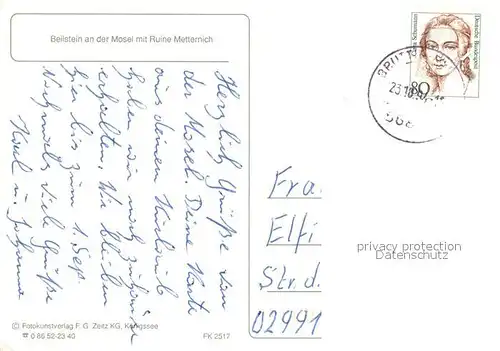 Beilstein an der Mosel mit Ruine Metternich
Herzlich Grüße von
der Mosel. Deine Karte
aus deinem Urlaub
haben wir noch zuhause
erhalten. Wir bleiben
hier bis zum 1. Sep.
Nochmals viele Grüße
Karl u. Johanna
© Fotokunstverlag F. G. Zeitz KG, Königssee
☎ 0 86 52-23 40
FK 2517
Deutsche Bundespost
80
568
Fra
Elfi
Str. d.
02991
privacy protection
Datenschutz